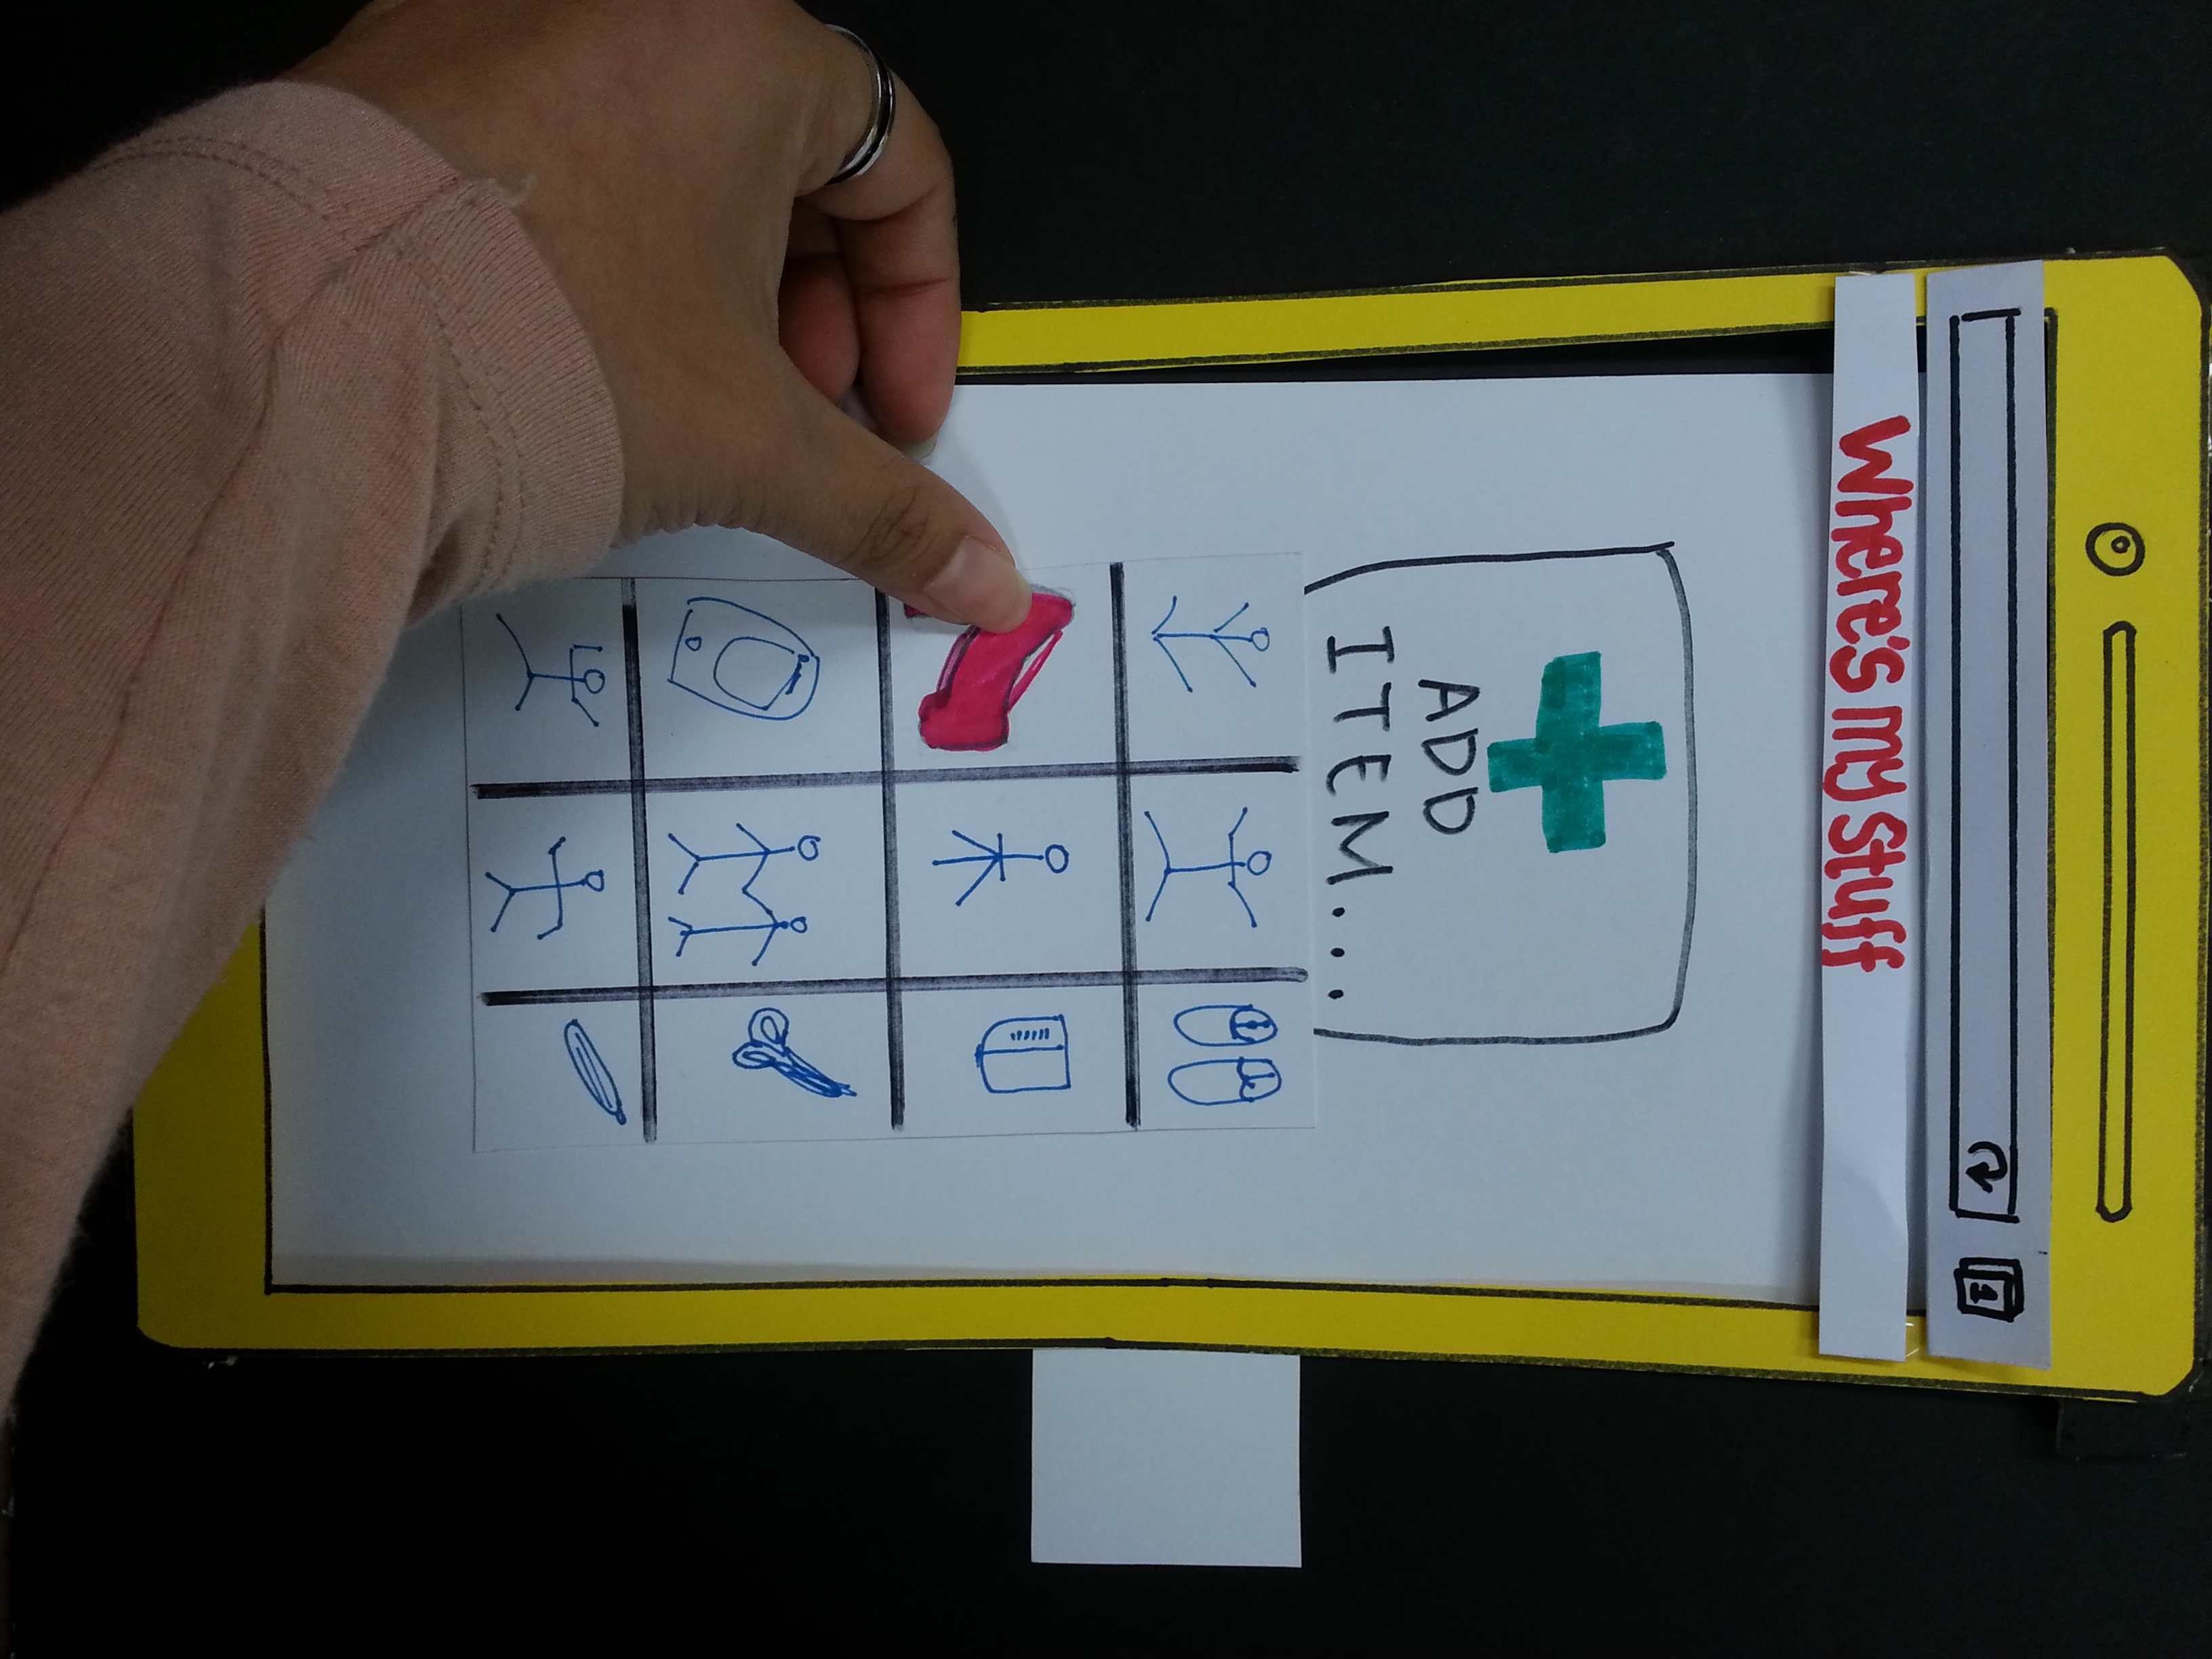 Where's my Stuff
ADD
ITEM....